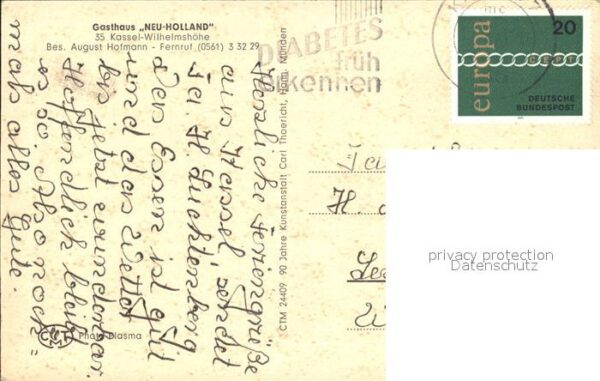 Gasthaus „NEU-HOLLAND"
35 Kassel-Wilhelmshöhe
Bes. August Hofmann - Fernruf (0561) 3 32 29
DIABETES
früh
erkennen
europa
20
DEUTSCHE
BUNDESPOST
Herzliche Feriengrüße
aus Kassel sendet
Fa. H. Luchtenberg
Das Essen ist gut
und das Wetter
bis jetzt wunderbar.
Hoffendlich bleibt
es so. Also noch
mals alles Gute.
CTM 24409 90 Jahre Kunstanstalt Carl Thoericht, Hann. Münden
H.
privacy protection
Datenschutz
Photo Blasma